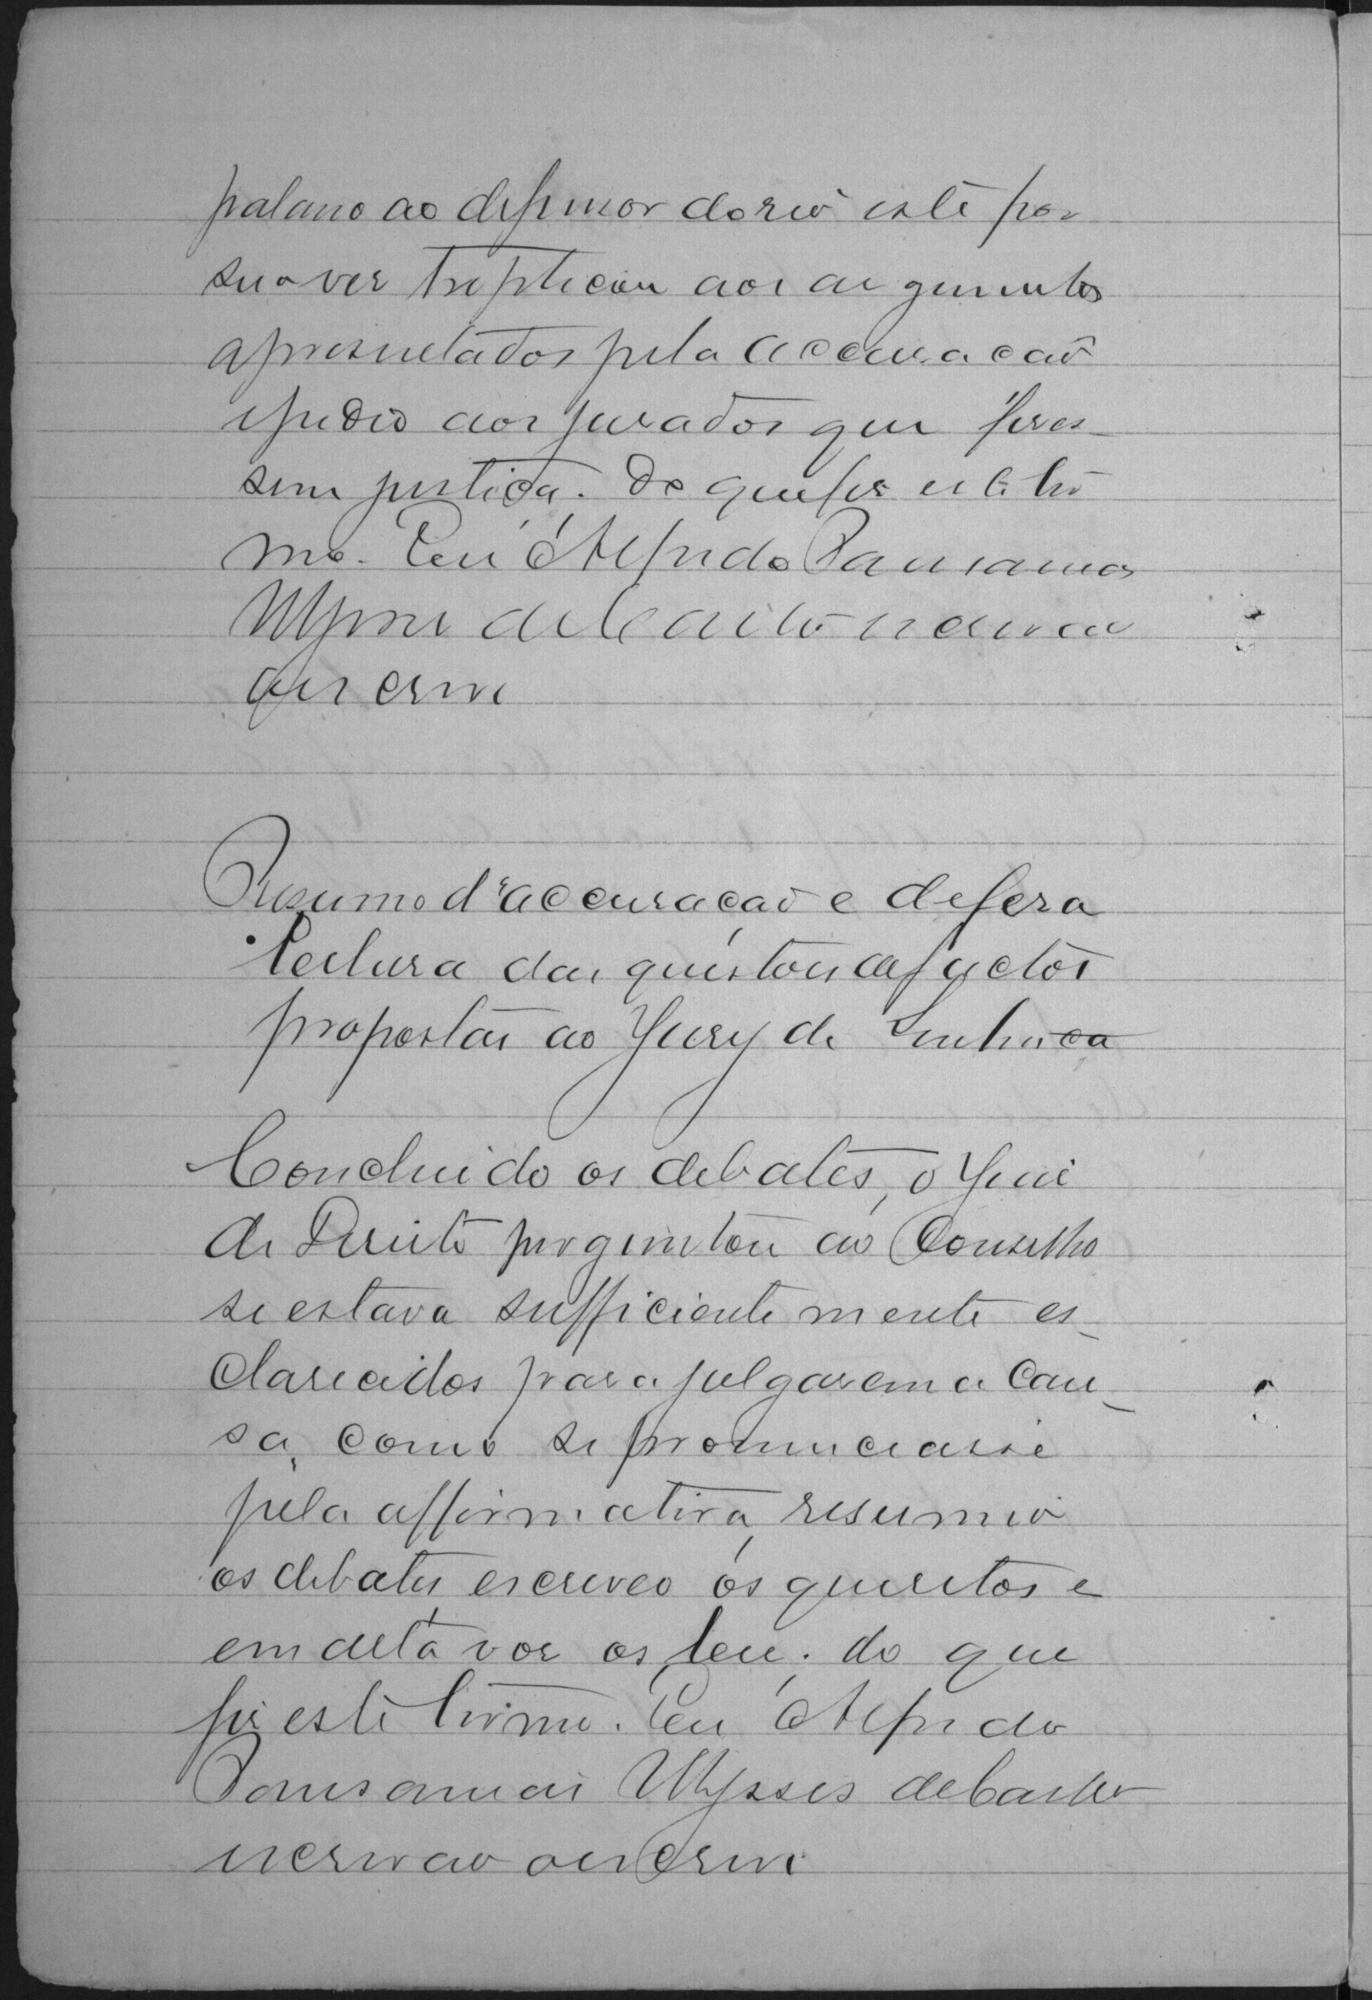 palavra ao defensor do réo este por
sua vez treplicou aos argumentos
apresentados pela accusação
e pedio aos jurados que fizes-
sem justiça. Do que fiz este ter
mo. Eu Alfredo Pausanias
Ulysses de Castro escrivão
que escrevi
Resumo d'accusação e defesa
Leitura das questões de factos
propostas ao Jury de Sentença
Concluido os debates, o Juiz
de Direito perguntou ao Conselho
se estava sufficientemente es-
clarecidos para julgarem a cau-
sa, como se pronunciasse
pela affirmativa, resumio
os debates escreveo os quesitos e
em alta voz os leu. do que
fiz este termo. Eu Alfredo
Pausanias Ulysses de Castro
escrivão que escrevi